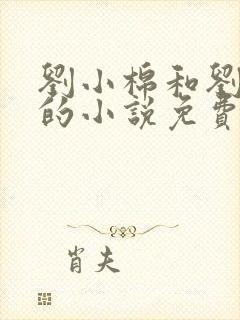 劉小棉和劉
的小說免費
肖夫